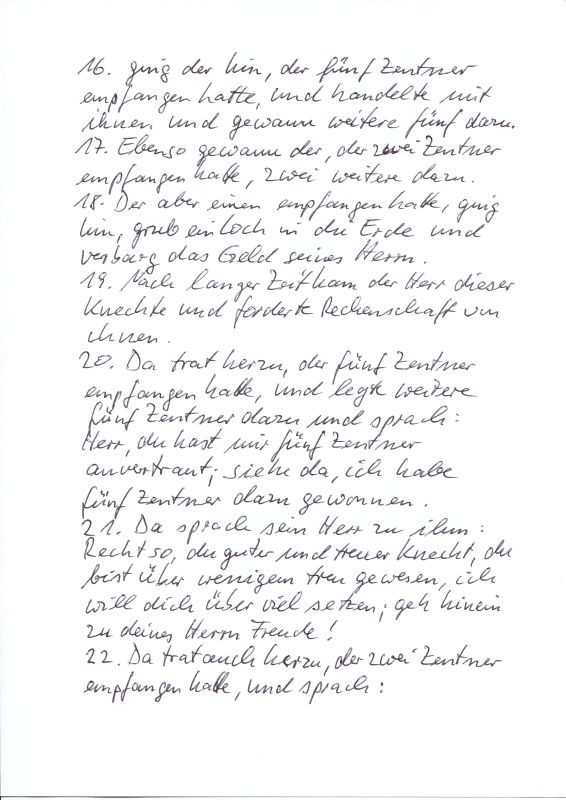 16. ging der hin, der fünf Zentner
empfangen hatte, und handelte mit
ihnen und gewann weitere fünf dazu.
17. Ebenso gewann der, der zwei Zentner
empfangen hatte, zwei weitere dazu.
18. Der aber einen empfangen hatte, ging
hin, grub ein Loch in die Erde und
verbarg das Geld seines Herrn.
19. Nach langer Zeit kam der Herr dieser
Knechte und forderte Rechenschaft von
ihnen.
20. Da trat herzu, der fünf Zentner
empfangen hatte, und legte weitere
fünf Zentner dazu und sprach:
Herr, du hast mir fünf Zentner
anvertraut; siehe da, ich habe
fünf Zentner dazu gewonnen.
21. Da sprach sein Herr zu ihm:
Recht so, du guter und treuer Knecht, du
bist über wenigem treu gewesen, ich
will dich über viel setzen; geh hinein
zu deines Herrn Freude!
22. Da trat auch herzu, der zwei Zentner
empfangen hatte, und sprach: